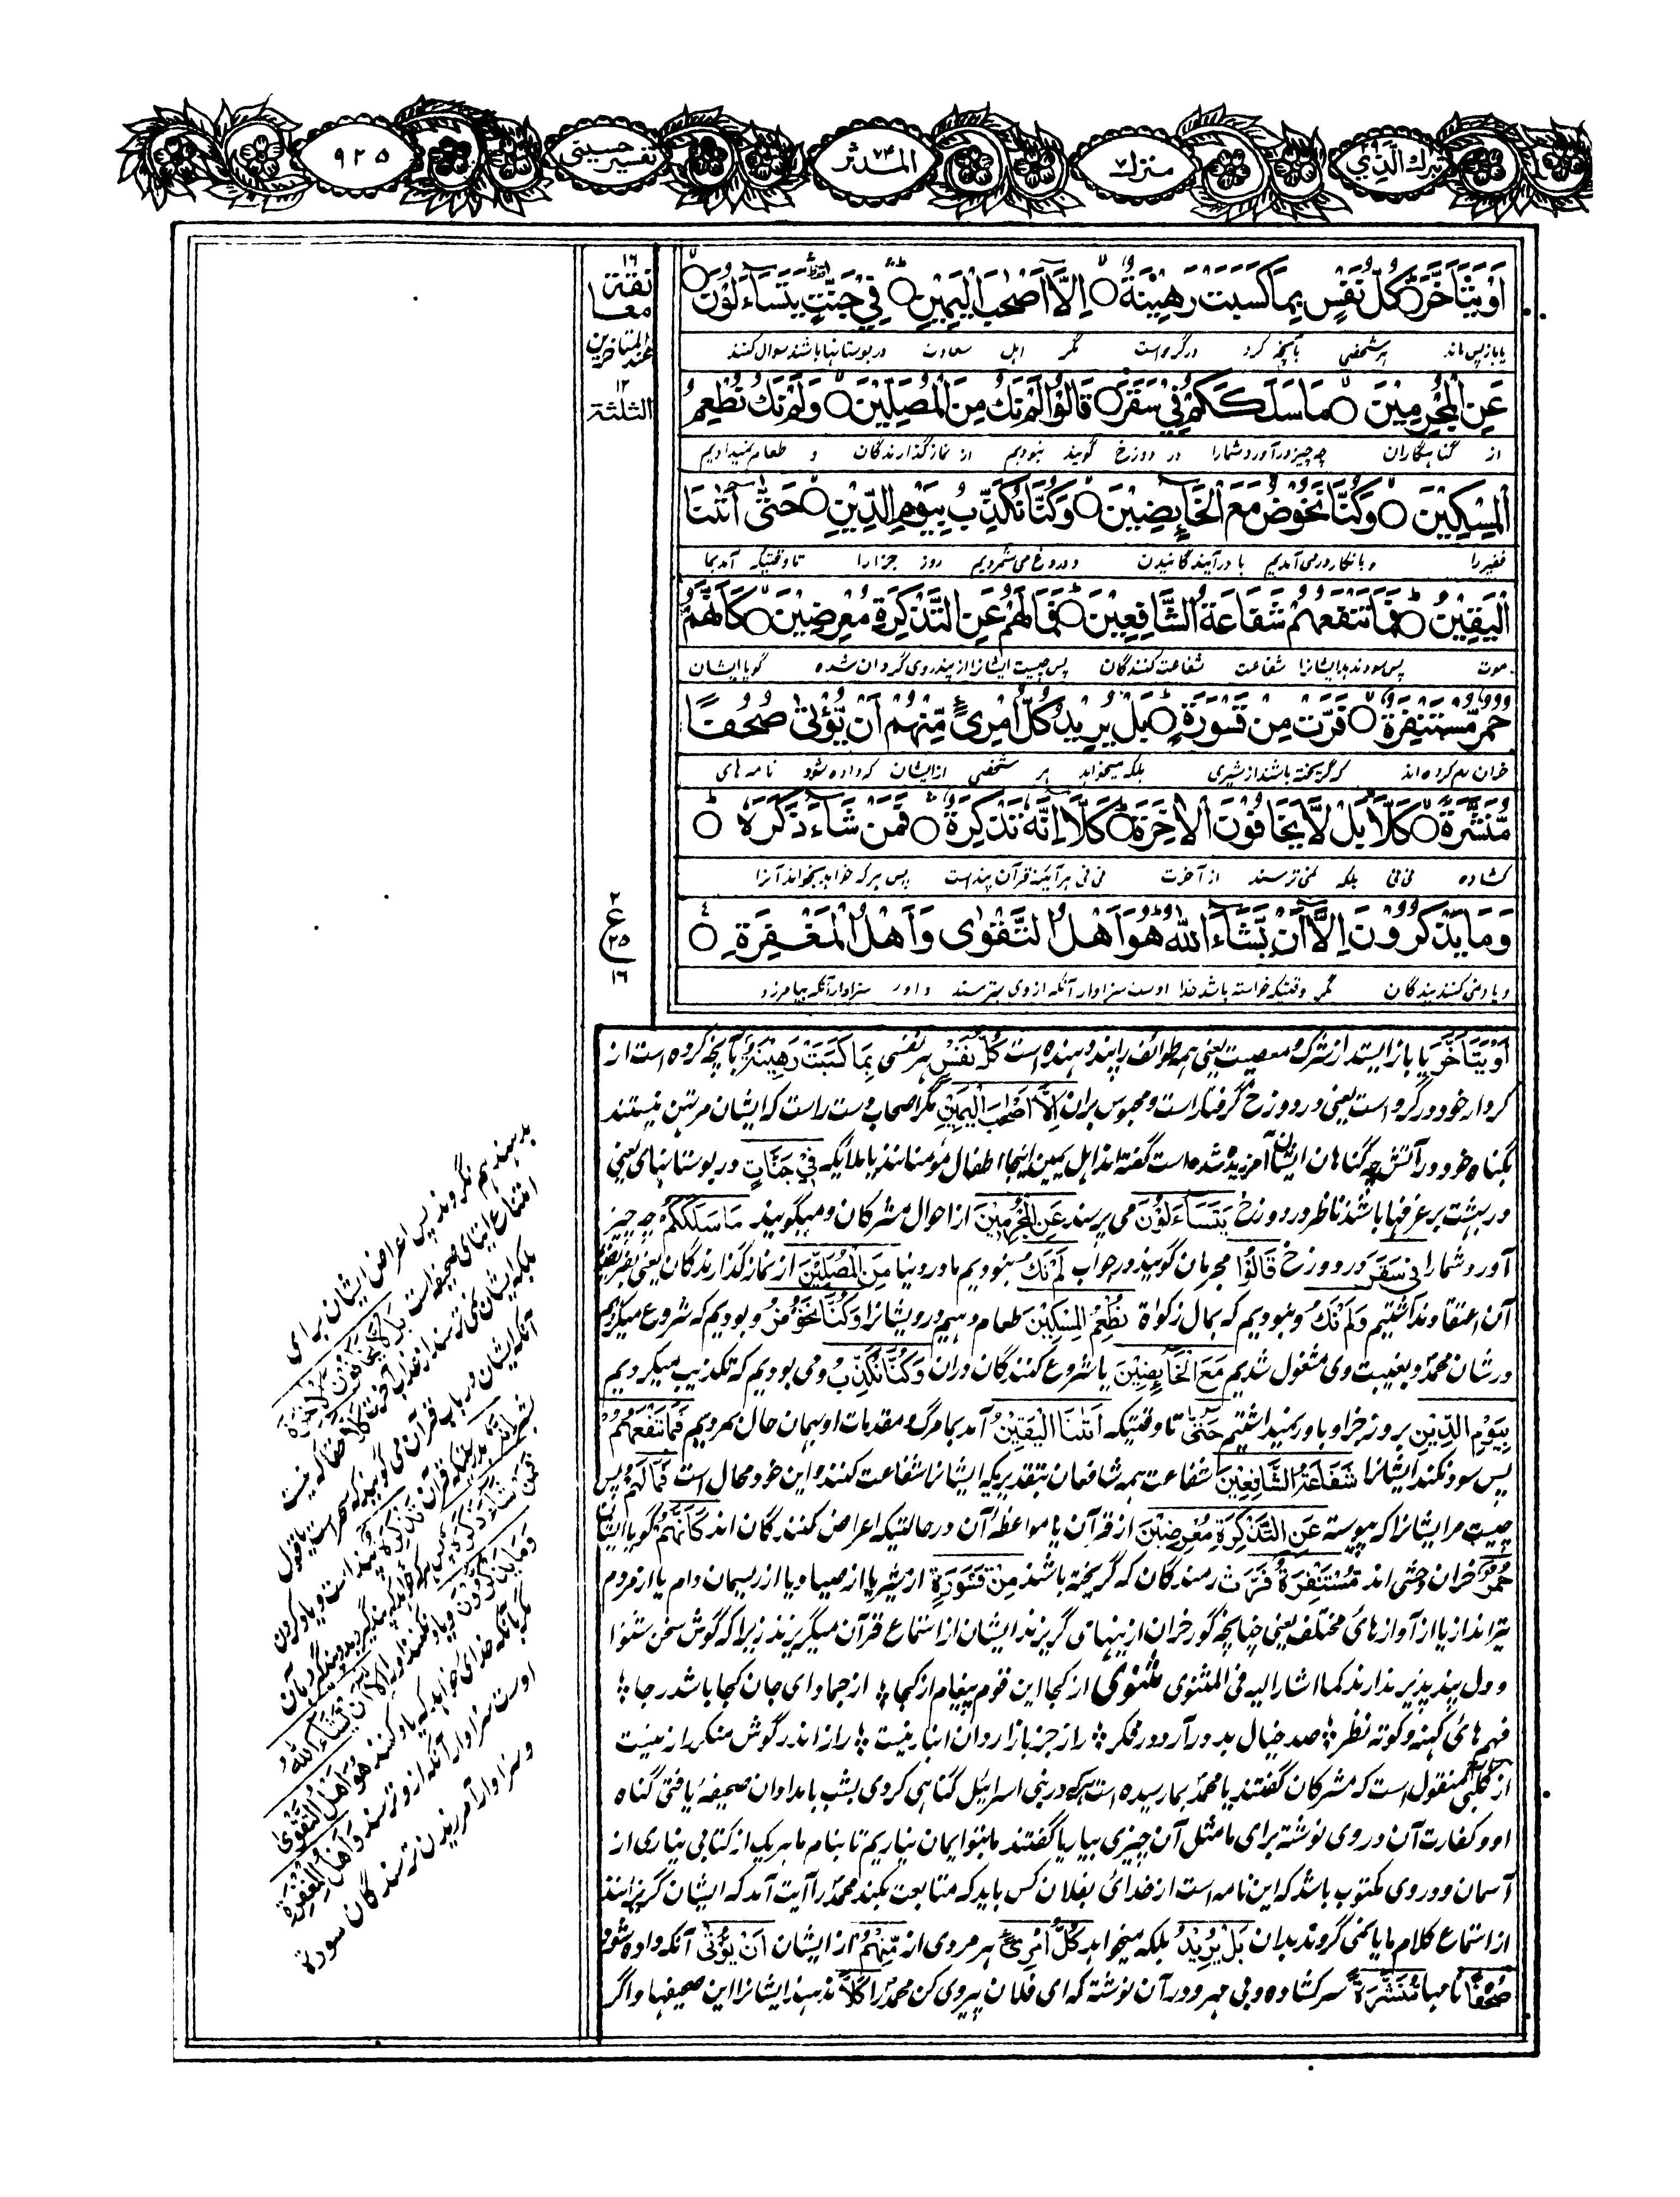 تبرك الذي
منزل ٧
المدثر ٧٤
تفسير حسيني
٩٢٥
اَوْ يَتَاَخَّرَ ○ كُلُّ نَفْسٍ بِمَا كَسَبَتْ رَهِيْنَةٌ ○ اِلَّا اَصْحٰبَ الْيَمِيْنِ ○ فِيْ جَنّٰتٍ يَتَسَآءَلُوْنَ ○
یا بازپس ماند هر شخصی بآنچه کرد در گرو است مگر اهل سعادت در بوستانها باشند سوال کنند
عَنِ الْمُجْرِمِيْنَ ○ مَا سَلَكَكُمْ فِيْ سَقَرَ ○ قَالُوْا لَمْ نَكُ مِنَ الْمُصَلِّيْنَ ○ وَلَمْ نَكُ نُطْعِمُ
از گناهگاران چه چیز درآورد شمارا در دوزخ گویند نبودیم از نماز گذارندگان و طعام نمیدادیم
الْمِسْكِيْنَ ○ وَكُنَّا نَخُوْضُ مَعَ الْخَآئِضِيْنَ ○ وَكُنَّا نُكَذِّبُ بِيَوْمِ الدِّيْنِ ○ حَتّٰى اَتٰنَا
فقیر را و بانکار درمی آمدیم با درآیندگان و دروغ می شمردیم روز جزا را تا وقتیکه آمد بما
الْيَقِيْنُ ○ فَمَا تَنْفَعُهُمْ شَفَاعَةُ الشَّافِعِيْنَ ○ فَمَا لَهُمْ عَنِ التَّذْكِرَةِ مُعْرِضِيْنَ ○ كَاَنَّهُمْ
موت پس سود ندهد ایشانرا شفاعت شفاعت کنندگان پس چیست ایشانرا از پند روی گردان شده گویا ایشان
حُمُرٌ مُّسْتَنْفِرَةٌ ○ فَرَّتْ مِنْ قَسْوَرَةٍ ○ بَلْ يُرِيْدُ كُلُّ امْرِئٍ مِّنْهُمْ اَنْ يُّؤْتٰى صُحُفًا
خران رم کرده اند که گریخته باشند از شیری بلکه میخواهد هر شخصی از ایشان که داده شود نامه های
مُّنَشَّرَةً ○ كَلَّا بَلْ لَّا يَخَافُوْنَ الْاٰخِرَةَ ○ كَلَّا اِنَّهٗ تَذْكِرَةٌ ○ فَمَنْ شَآءَ ذَكَرَهٗ ○
کشاده نی نی بلکه نمی ترسند از آخرت نی نی هر آئینه قرآن پند است پس هر که خواهد بخواند آنرا
وَمَا يَذْكُرُوْنَ اِلَّا اَنْ يَّشَآءَ اللّٰهُ هُوَ اَهْلُ التَّقْوٰى وَاَهْلُ الْمَغْفِرَةِ ○
و یاد نمی کنند بندگان مگر وقتیکه خواسته باشد خدا اوست سزاوار آنکه از وی بترسند و اوست سزاوار آنکه بیامرزد
١٦
معا
عند المتأخرين
١٢
الثلثة
٢
ع
٢٥
١٦
اَوْ يَتَاَخَّرَ یا باز ایستد از شرک و معصیت یعنی همه طوائف را پند دهنده است كُلُّ نَفْسٍ هر نفسی بِمَا كَسَبَتْ رَهِيْنَةٌ بآنچه کرده است از
کردار خود در گرو است یعنی در دوزخ گرفتار است و محبوس بران اِلَّا اَصْحٰبَ الْيَمِيْنِ مگر اصحاب دست راست که ایشان مرتهن نیستند
بگناه خود در آتش چه گناهان ایشان آمرزیده شده است گفته اند اهل یمین اینجا اطفال مؤمنانند یا ملائکه فِيْ جَنَّاتٍ در بوستانهای یعنی
در بهشت بر غرفها باشند ناظر در دوزخ يَتَسَآءَلُوْنَ می پرسند عَنِ الْمُجْرِمِيْنَ از احوال مشرکان و میگویند مَا سَلَكَكُمْ چه چیز
آورد شمارا فِيْ سَقَرَ در دوزخ قَالُوْا مجرمان گویند در جواب لَمْ نَكُ نبودیم ما در دنیا مِنَ الْمُصَلِّيْنَ از نماز گذارندگان یعنی
آن اعتقاد نداشتیم وَلَمْ نَكُ و نبودیم که بمال زکوٰة نُطْعِمُ الْمِسْكِيْنَ طعام دهیم درویشانرا وَكُنَّا نَخُوْضُ و بودیم که شروع میکردیم
در شان محمد و بغیبت وی مشغول شدیم مَعَ الْخَآئِضِيْنَ با شروع کنندگان دران وَكُنَّا نُكَذِّبُ و می بودیم که تکذیب میکردیم
بِيَوْمِ الدِّيْنِ بروز جزا و باور نمیداشتیم حَتّٰى تا وقتیکه اَتٰنَا الْيَقِيْنُ آمد بما مرگ و مقدمات او بهمان حال مردیم فَمَا تَنْفَعُهُمْ
پس سود نکند ایشانرا شَفَاعَةُ الشَّافِعِيْنَ شفاعت همه شافعان بتقدیریکه ایشانرا شفاعت کنند و این خود محال است فَمَا لَهُمْ پس
چیست مر ایشانرا که پیوسته عَنِ التَّذْكِرَةِ مُعْرِضِيْنَ از قرآن یا مواعظ آن در حالتیکه اعراض کنندگان اند كَاَنَّهُمْ گویا ایشان
حُمُرٌ خران وحشی اند مُسْتَنْفِرَةٌ فَرَّتْ رمندگان که گریخته باشند مِنْ قَسْوَرَةٍ از شیر یا از صیاد یا از ریسمان دام یا از مردم
تیر انداز یا از آوازهای مختلف یعنی چنانچه گورخران ازینها می گریزند ایشان از استماع قرآن میگریزند زیرا که گوش سخن شنوا
و دل پند پذیر ندارند کما اشار الیه فی المثنوی مثنوی از کجا این قوم پیغام از کجا ؛ از جمادی جان کجا باشد رجا ؛
فهم های کهنه و کوته نظر ؛ صد خیال بد درآرد در فکر ؛ راز جز با راز دان انباز نیست ؛ راز اندر گوش منکر راز نیست
از کلبی منقول است که مشرکان گفتند یا محمد بما رسیده است که در بنی اسرائیل گناهی کردی بشب بامدادان صحیفه یافتی گناه
او و کفارت آن در وی نوشته برای ما مثل آن چیزی بیار یا گفتند ما بتو ایمان نیاریم تا بنام ما هر یک از کتابی نیاری از
آسمان و در وی مکتوب باشد که این نامه است از خدای بفلان کس باید که متابعت بکند محمد را آیت آمد که ایشان گریزانند
از استماع کلام ما یا نمی گروند بدان بَلْ يُرِيْدُ بلکه میخواهد كُلُّ امْرِئٍ هر مردی از مِّنْهُمْ از ایشان اَنْ يُّؤْتٰى آنکه داده شود
صُحُفًا نامها مُّنَشَّرَةً سر کشاده و بی مهر و در آن نوشته که ای فلان پیروی کن محمد را كَلَّا ندهند ایشانرا این صحیفها و اگر
بدهند هم نگروند پس اعراض ایشان برای
امتناع ایتای صحیفه است بَلْ لَّا يَخَافُوْنَ الْاٰخِرَةَ
بلکه ایشان نمی ترسند از عذاب آخرت كَلَّا حقا که نیست
آنکه ایشان در باب قرآن می گویند که سحر است یا قول
بشر اِنَّهٗ بدرستیکه قرآن تَذْكِرَةٌ پند است و یاد کردن
فَمَنْ شَآءَ ذَكَرَهٗ پس هر که خواهد که پند گیرد پند گیرد بآن
وَمَا يَذْكُرُوْنَ و یاد نکنند او را اِلَّا اَنْ يَّشَآءَ اللّٰهُ
مگر بآنکه خدای خواهد که یاد کنند هُوَ اَهْلُ التَّقْوٰى
اوست سزاوار آنکه ازو ترسند وَاَهْلُ الْمَغْفِرَةِ
و سزاوار آمرزیدن ترسندگان سورة